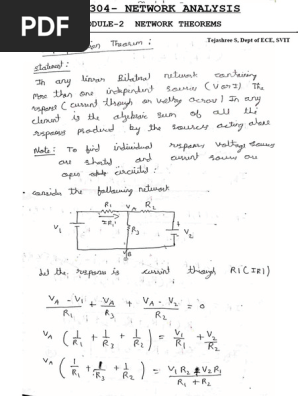 PDF
304- NETWORK ANALYSIS
ODULE-2 NETWORK THEOREMS
Tejashree S, Dept of ECE, SVIT
Theorem :
Statement :
In any linear Bilateral network containing
more than one independent sources (V or I) The
response (current through or voltage across) In any
element is the algebraic sum of all the
response produced by the sources acting alone
Note : To find individual response voltage sources
are shorted and current sources are
open circuited :
consider the following network
R1 VA R2
IR1
V1 R3 + V2
B
Let the response is current through R1 (IR1)
VA - V1 / R1 + VA / R3 + VA - V2 / R2 = 0
VA ( 1/R1 + 1/R3 + 1/R2 ) = V1/R1 + V2/R2
VA ( 1/R1 + 1/R3 + 1/R2 ) = V1 R2 + V2 R1 / R1 + R2